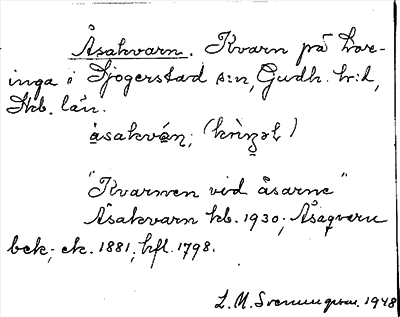 Åsakvarn. Kvarn på Lov-
inga i Sjögerstad s:n, Gudh. h:d,
Skb. län.
åsakván; (krìnəl)
"Kvarnen vid åsarne"
Åsakvarn hb. 1930; Åsaqvarn
bek; ek. 1881; hfl. 1798.
L. M. Svenungsson. 1948